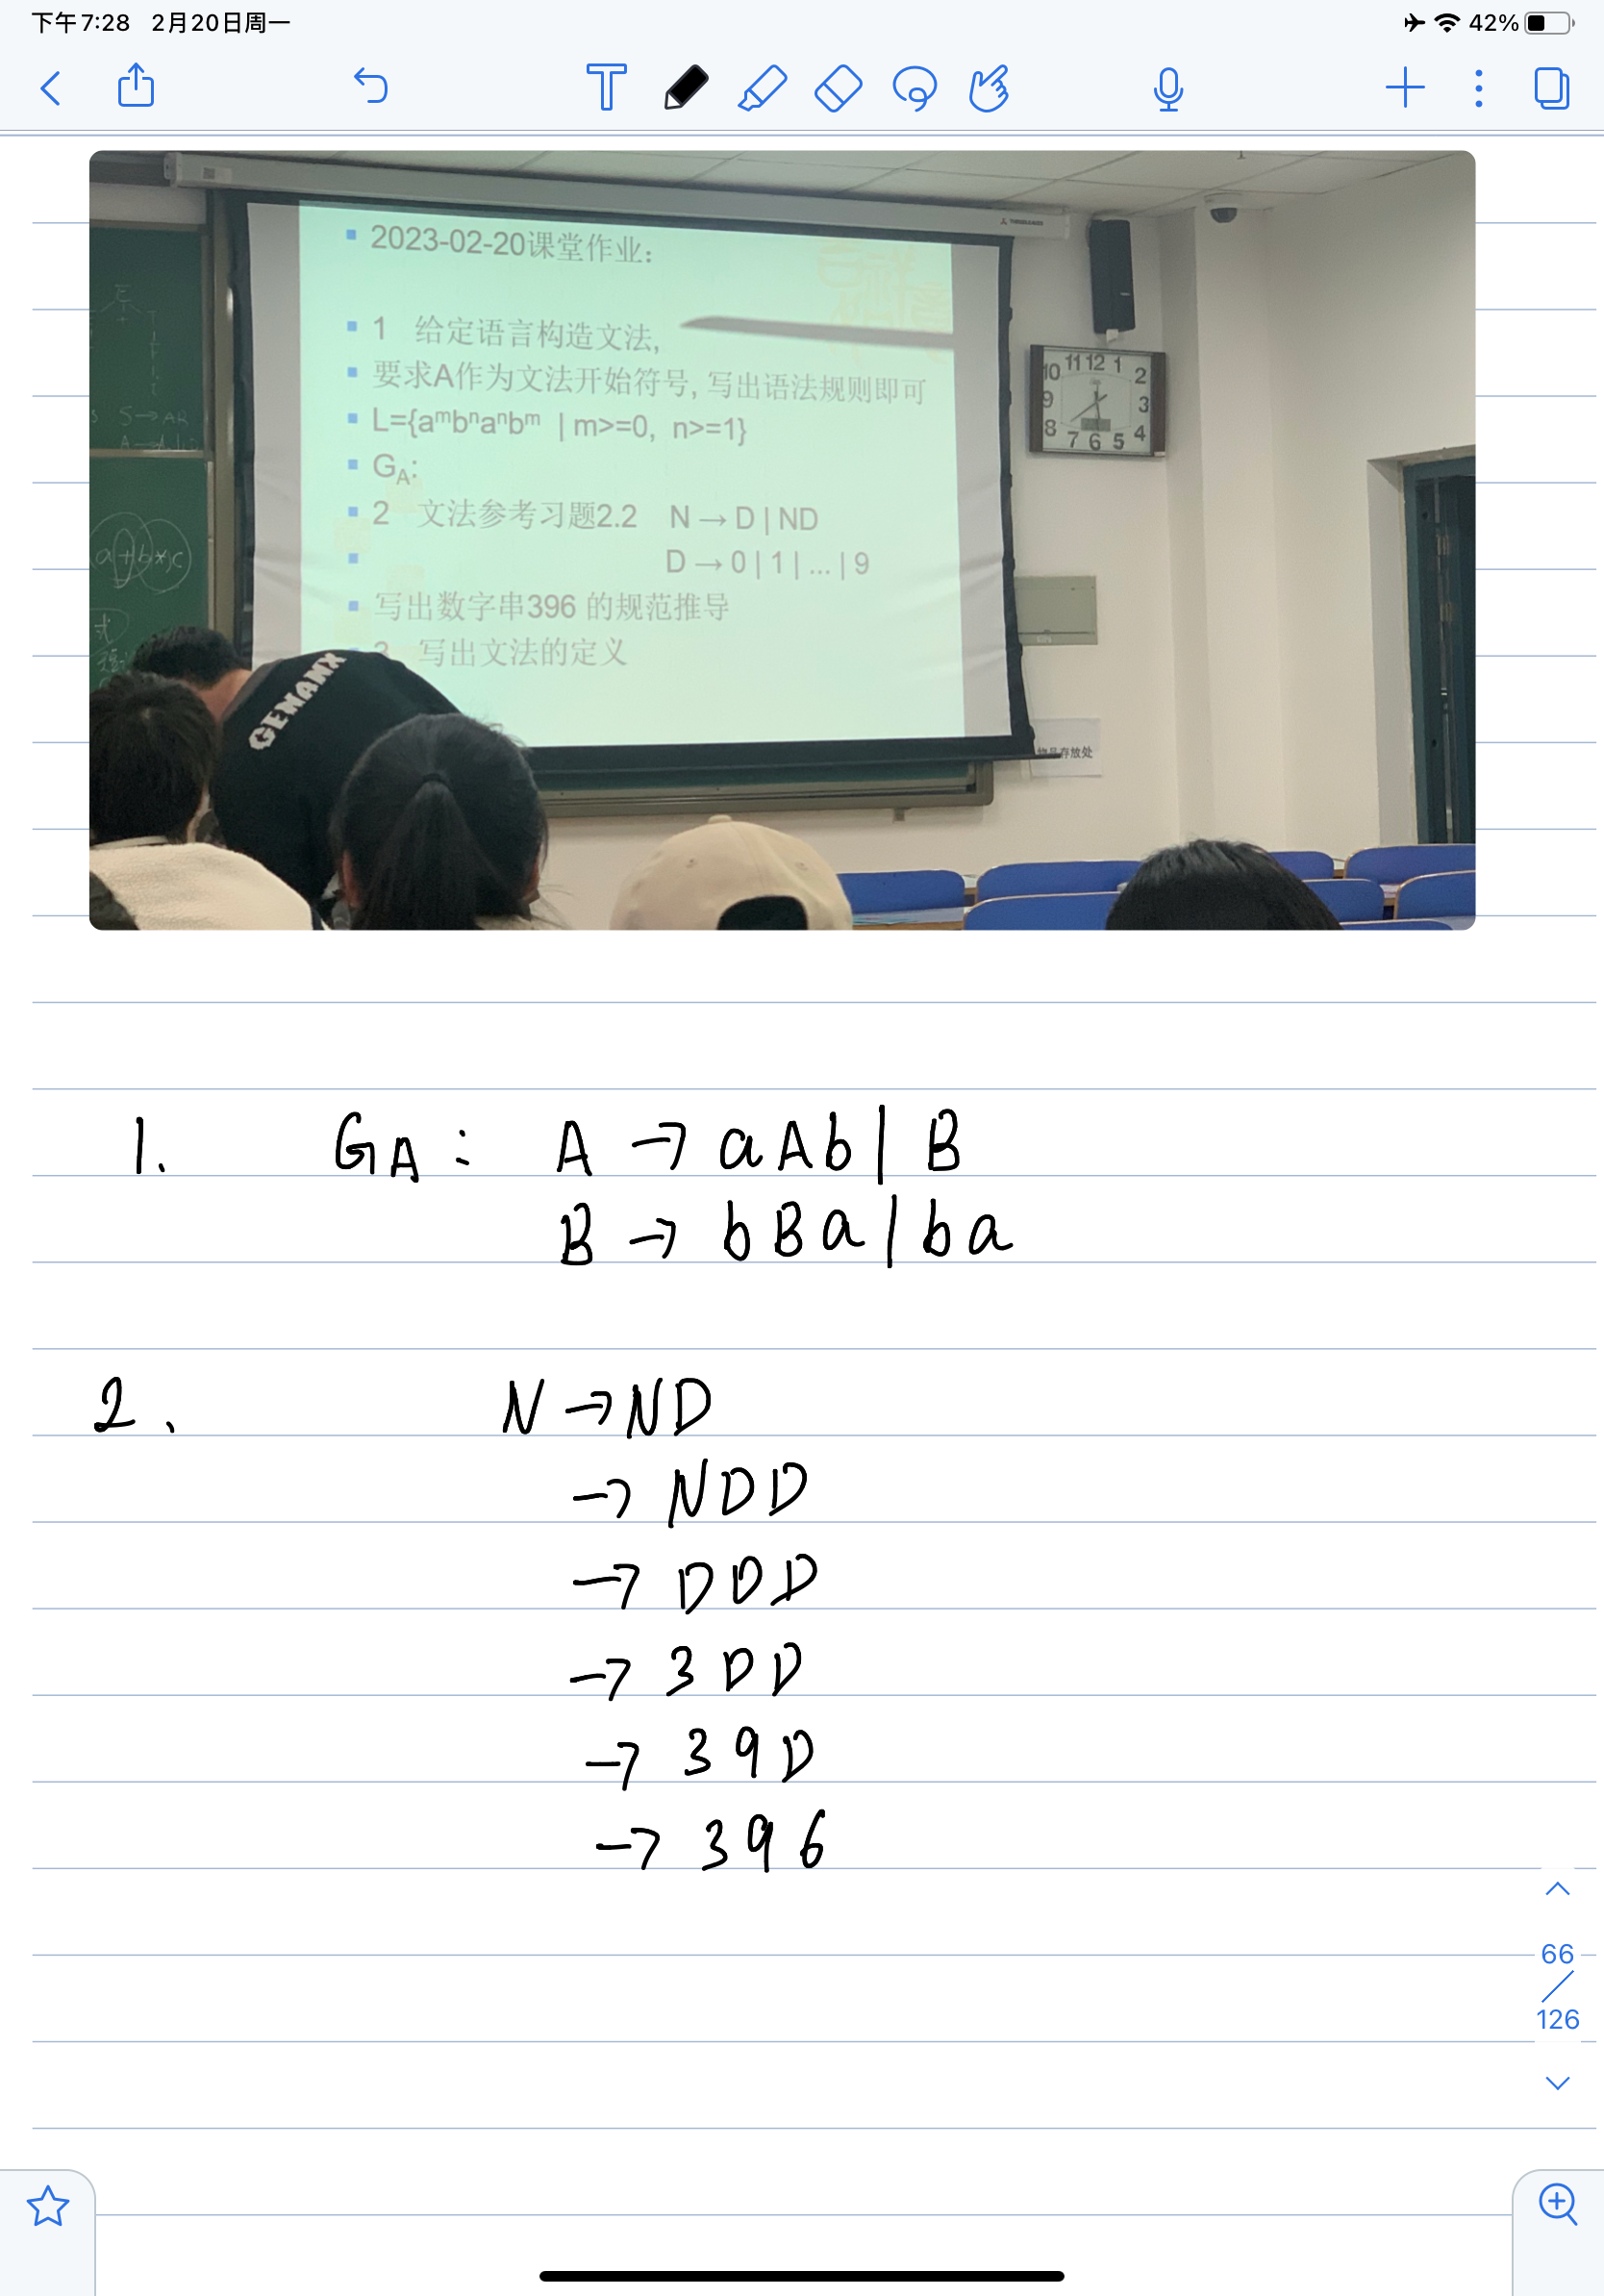 下午7:28 2月20日周一
42%
2023-02-20课堂作业：
1 给定语言构造文法,
要求A作为文法开始符号, 写出语法规则即可
L={aᵐbⁿaⁿbᵐ | m>=0, n>=1}
G_A:
2 文法参考习题2.2 N → D | ND
D → 0 | 1 | ... | 9
写出数字串396 的规范推导
3 写出文法的定义
S→AB
a+b*c
式
GEWANX
10 11 12 1 2 3 4 5 6 7 8 9
物品存放处
1. G_A: A → aAb | B
B → bBa | ba
2. N → ND
→ NDD
→ DDD
→ 3DD
→ 39D
→ 396
66
126